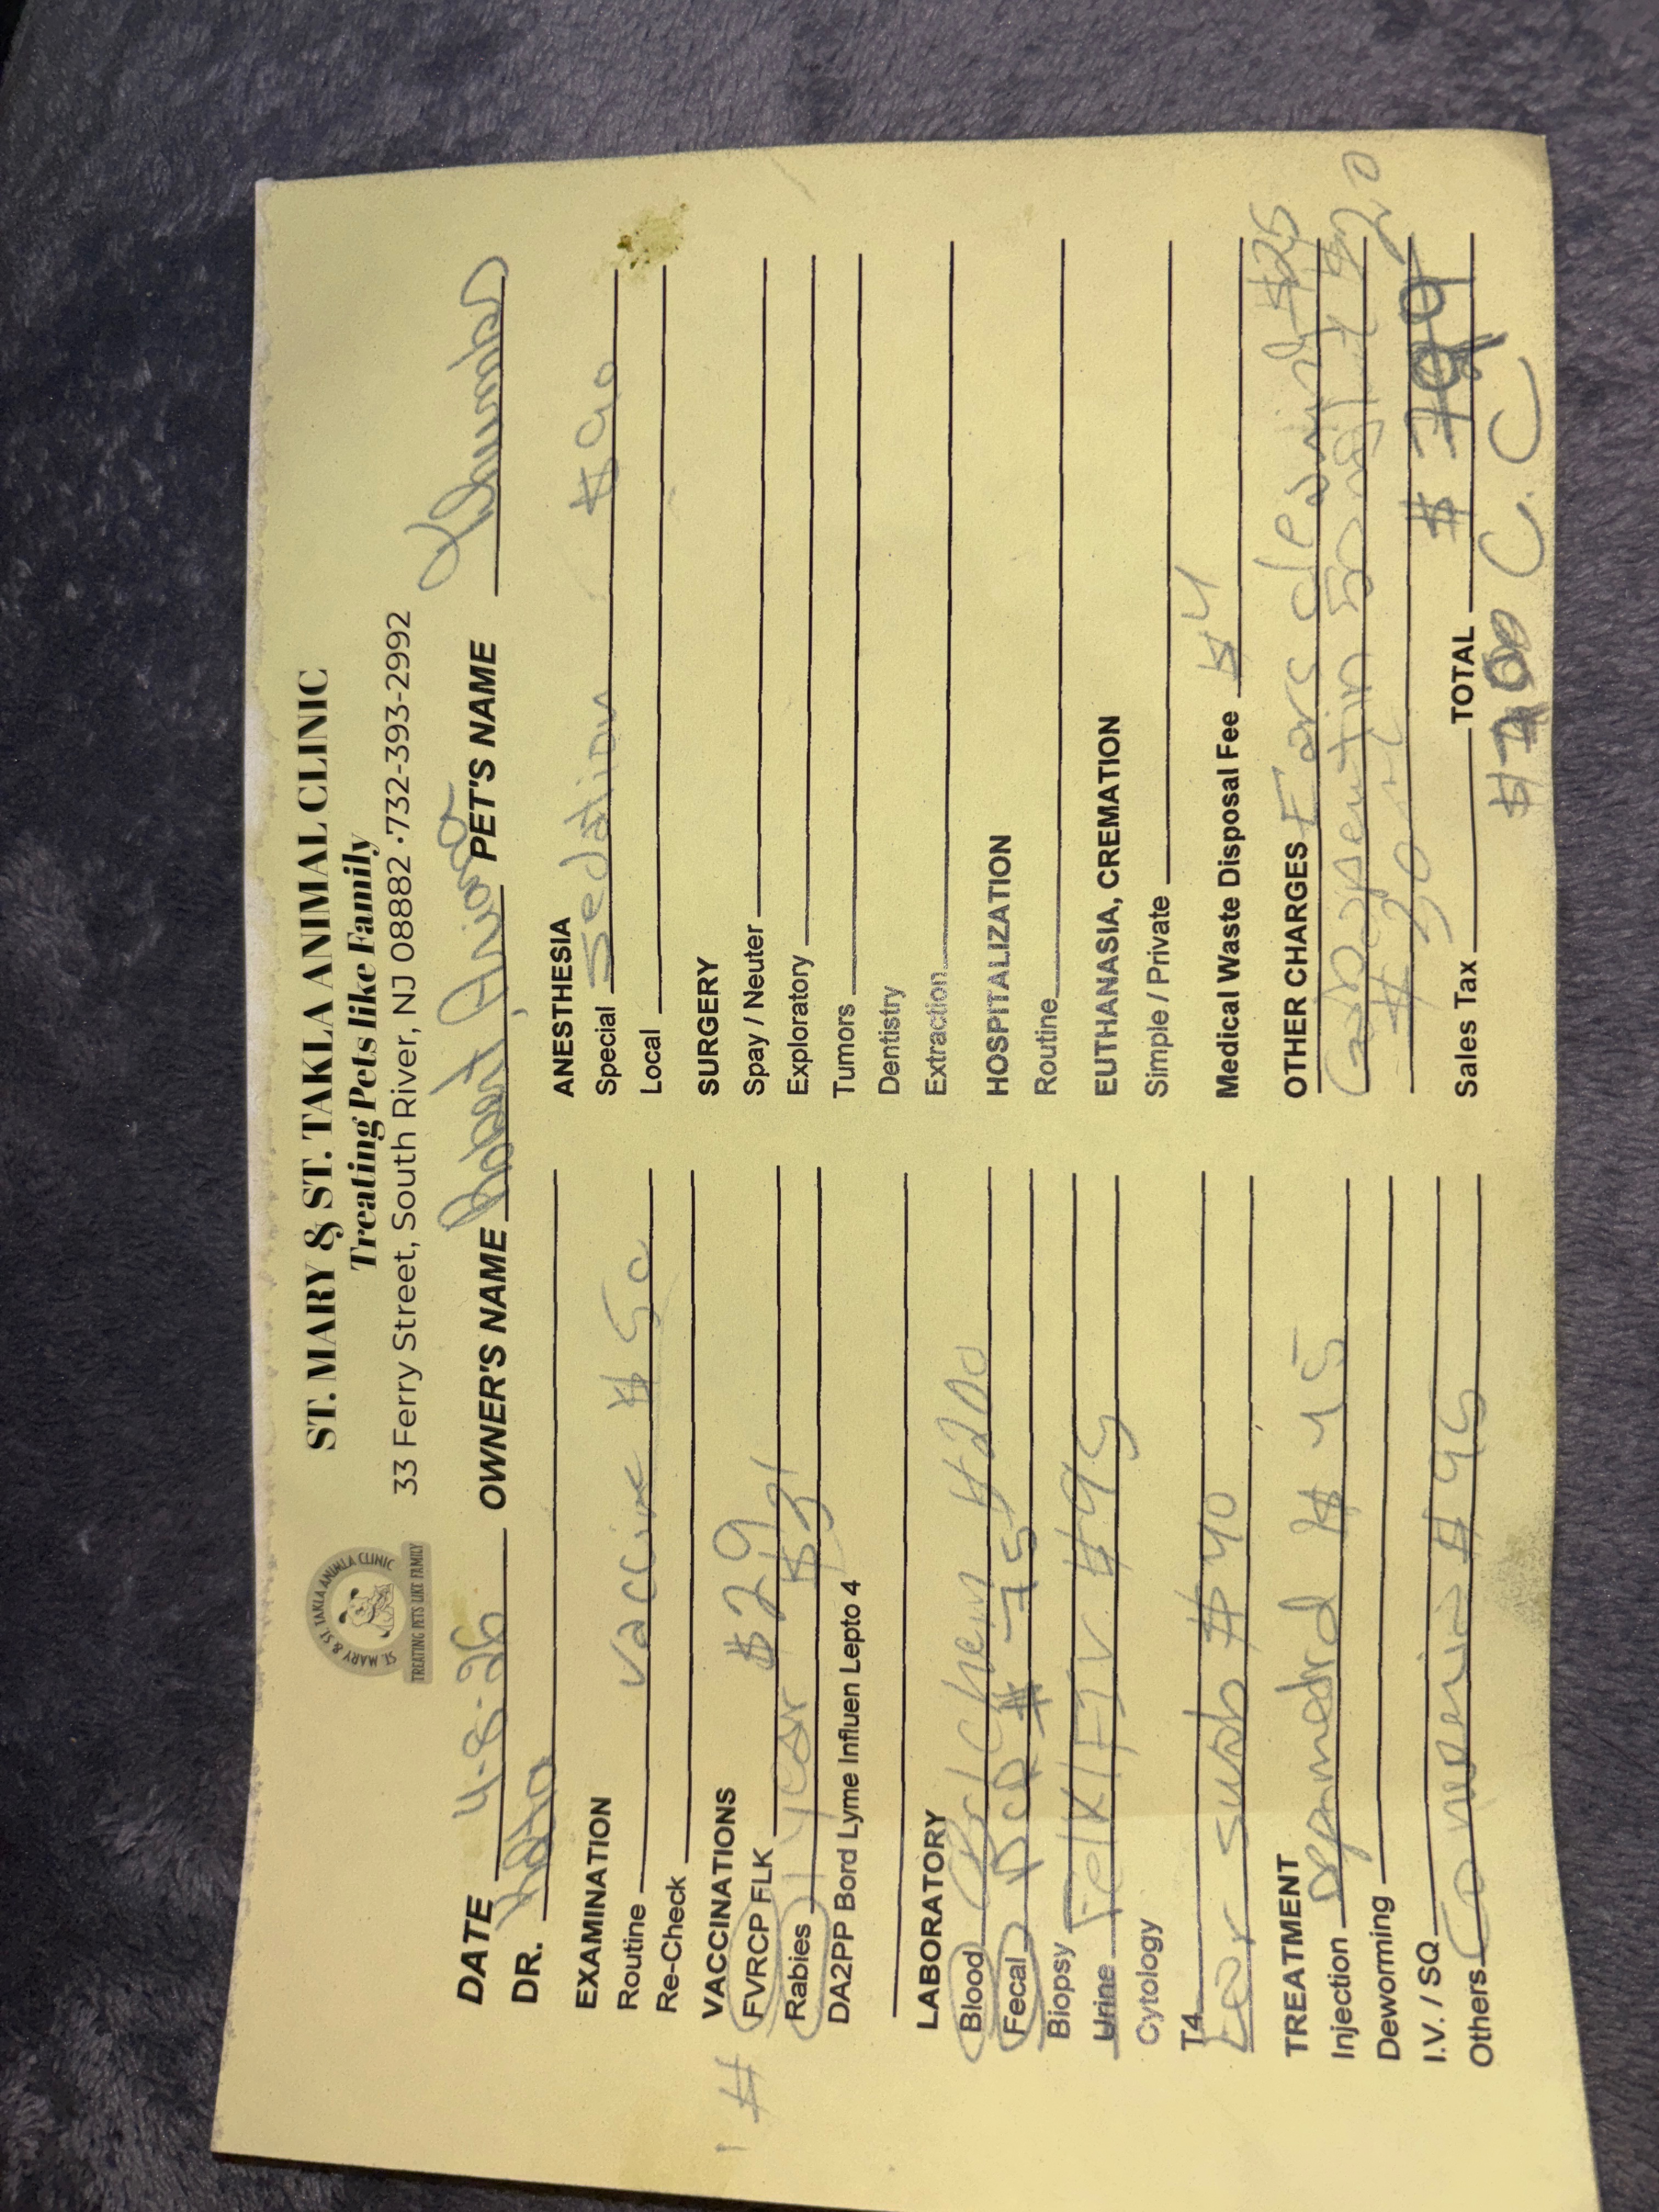 ST. MARY & ST. TAKLA ANIMAL CLINIC
Treating Pets like Family
33 Ferry Street, South River, NJ 08882 · 732-393-2992
ST. MARY & ST. TAKLA ANIMLA CLINIC
TREATING PETS LIKE FAMILY
DATE 4-8-26 OWNER'S NAME Robert PET'S NAME
DR.
EXAMINATION
Routine vaccine $50
Re-Check
VACCINATIONS
# FVRCP FLK $29
Rabies 1 year $31
DA2PP Bord Lyme Influen Lepto 4
LABORATORY
Blood CBC/Chem $200
Fecal
Biopsy
Urine FelV/FIV $95
Cytology
T4
Ear swab $40
TREATMENT
Injection Depomedrol $45
Deworming
I.V. / SQ
Others Convenia $95
ANESTHESIA
Special Sedation $90
Local
SURGERY
Spay / Neuter
Exploratory
Tumors
Dentistry
Extraction
HOSPITALIZATION
Routine
EUTHANASIA, CREMATION
Simple / Private
Medical Waste Disposal Fee $4
OTHER CHARGES Ears cleaning $25
Gabapentin 50 mg $20
Sales Tax TOTAL
C.C